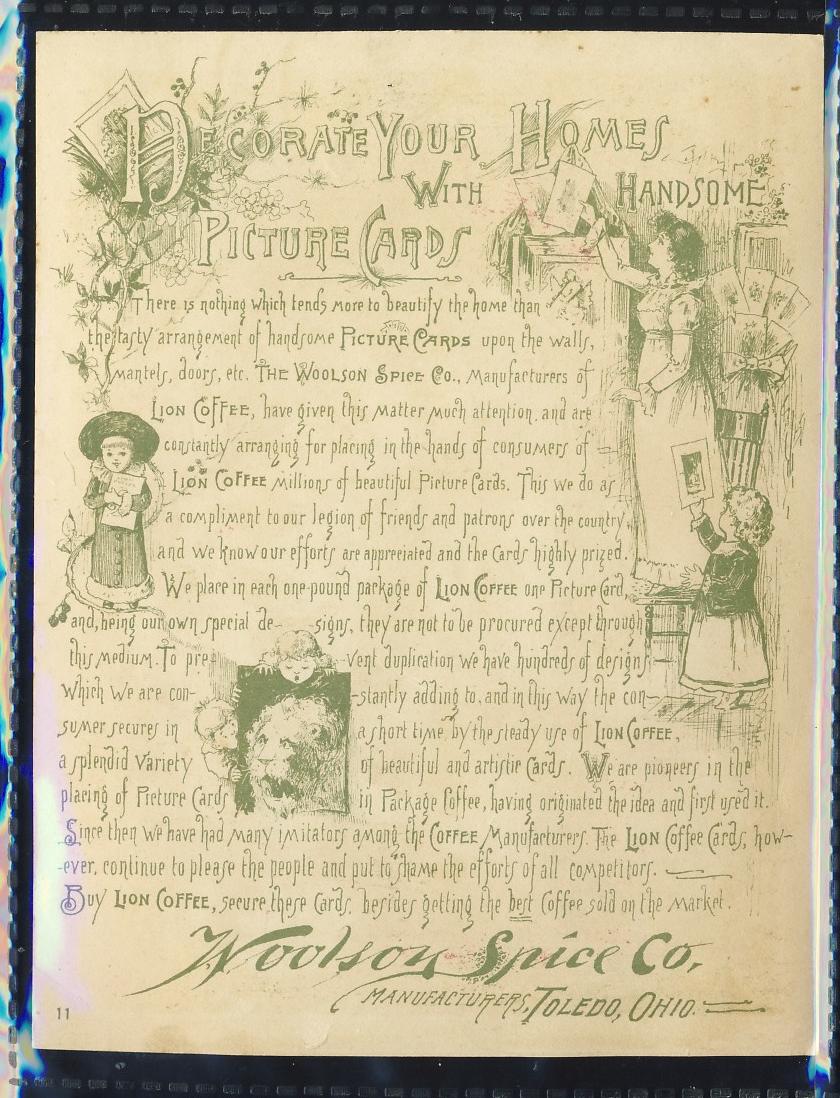 Decorate Your Homes
With Handsome
Picture Cards
There is nothing which tends more to beautify the home than
the tasty arrangement of handsome Picture Cards upon the walls,
mantels, doors, etc. The Woolson Spice Co., Manufacturers of
Lion Coffee, have given this matter much attention, and are
constantly arranging for placing in the hands of consumers of
Lion Coffee Millions of beautiful Picture Cards. This we do as
a compliment to our legion of friends and patrons over the country,
and we know our efforts are appreciated and the Cards highly prized.
We place in each one-pound package of Lion Coffee one Picture Card,
and, being our own special de- signs, they are not to be procured except through
this medium. To pre- vent duplication we have hundreds of designs
which we are con- stantly adding to, and in this way the con-
sumer secures in a short time, by the steady use of Lion Coffee,
a splendid variety of beautiful and artistic Cards. We are pioneers in the
placing of Picture Cards in Package Coffee, having originated the idea and first used it.
Since then we have had many imitators among the Coffee Manufacturers. The Lion Coffee Cards, how-
ever, continue to please the people and put to shame the efforts of all competitors.
Buy Lion Coffee, secure these Cards, besides getting the best Coffee sold on the Market.
Woolson Spice Co.,
Manufacturers, Toledo, Ohio.
11